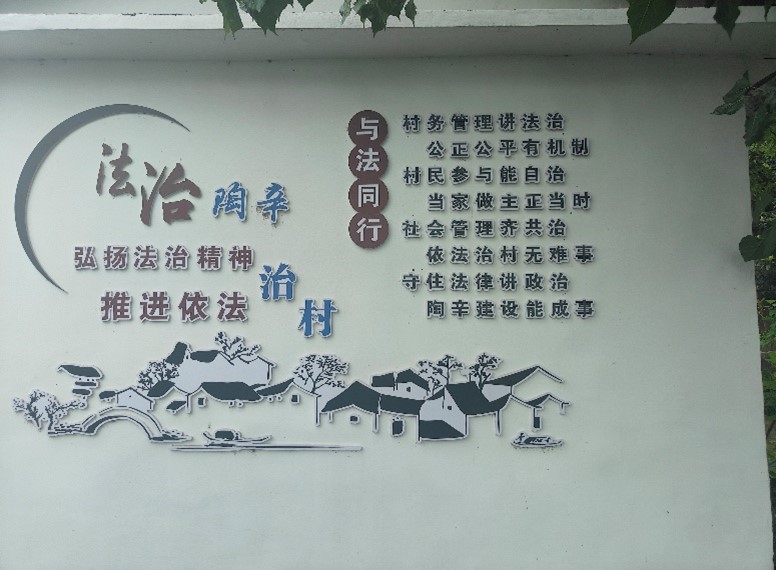 法治陶辛
弘扬法治精神
推进依法治村
与法同行
村务管理讲法治
公正公平有机制
村民参与能自治
当家做主正当时
社会管理齐共治
依法治村无难事
守住法律讲政治
陶辛建设能成事